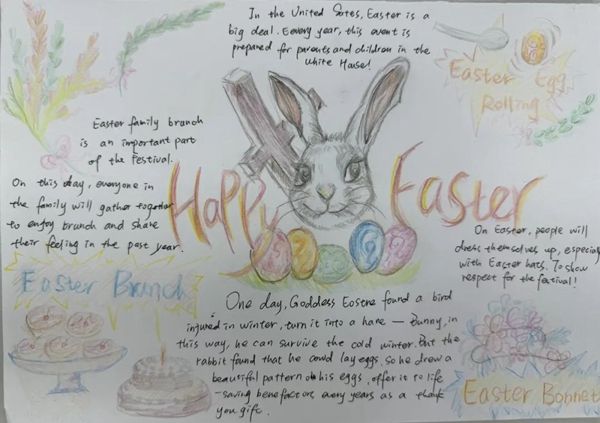 In the United Sates, Easter is a
big deal. Eevery year, this event is
prepared for parents and children in the
White House!
Easter Egg
Rolling
Easter family branch
is an important part
of the Festival.
On this day, everyone in
the family will gather together
to enjoy brunch and share
their feeling in the past year.
Happy Easter
On Easter, people will
dress themselves up, especial
with Easter hats. To show
respect for the festival!
Easter Brunch
One day, Goddess Eostre found a bird
injured in winter, turn it into a hare — Bunny, in
this way, he can survive the cold winter. But the
rabbit found that he could lay eggs. so he drew a
beautiful pattern on his eggs, offer it to life
-saving benefactors every years as a thank
you gift.
Easter Bonnet